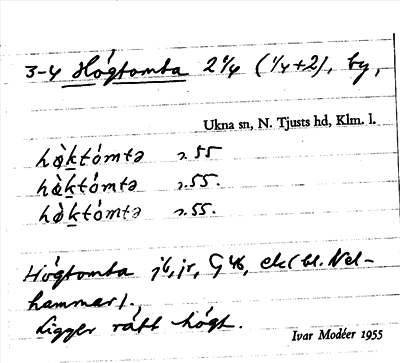 3-4 Högtomta 2 1/4 (1/4+2), by,
Ukna sn, N. Tjusts hd, Klm. l.
hø̀któmtə s.55
hø̀któmtə s.55.
hø̀któmtə s.55.
Högtomta jb, jr, G46, ek (bl. Nel-
hammar).
Ligger rätt högt.
Ivar Modéer 1955